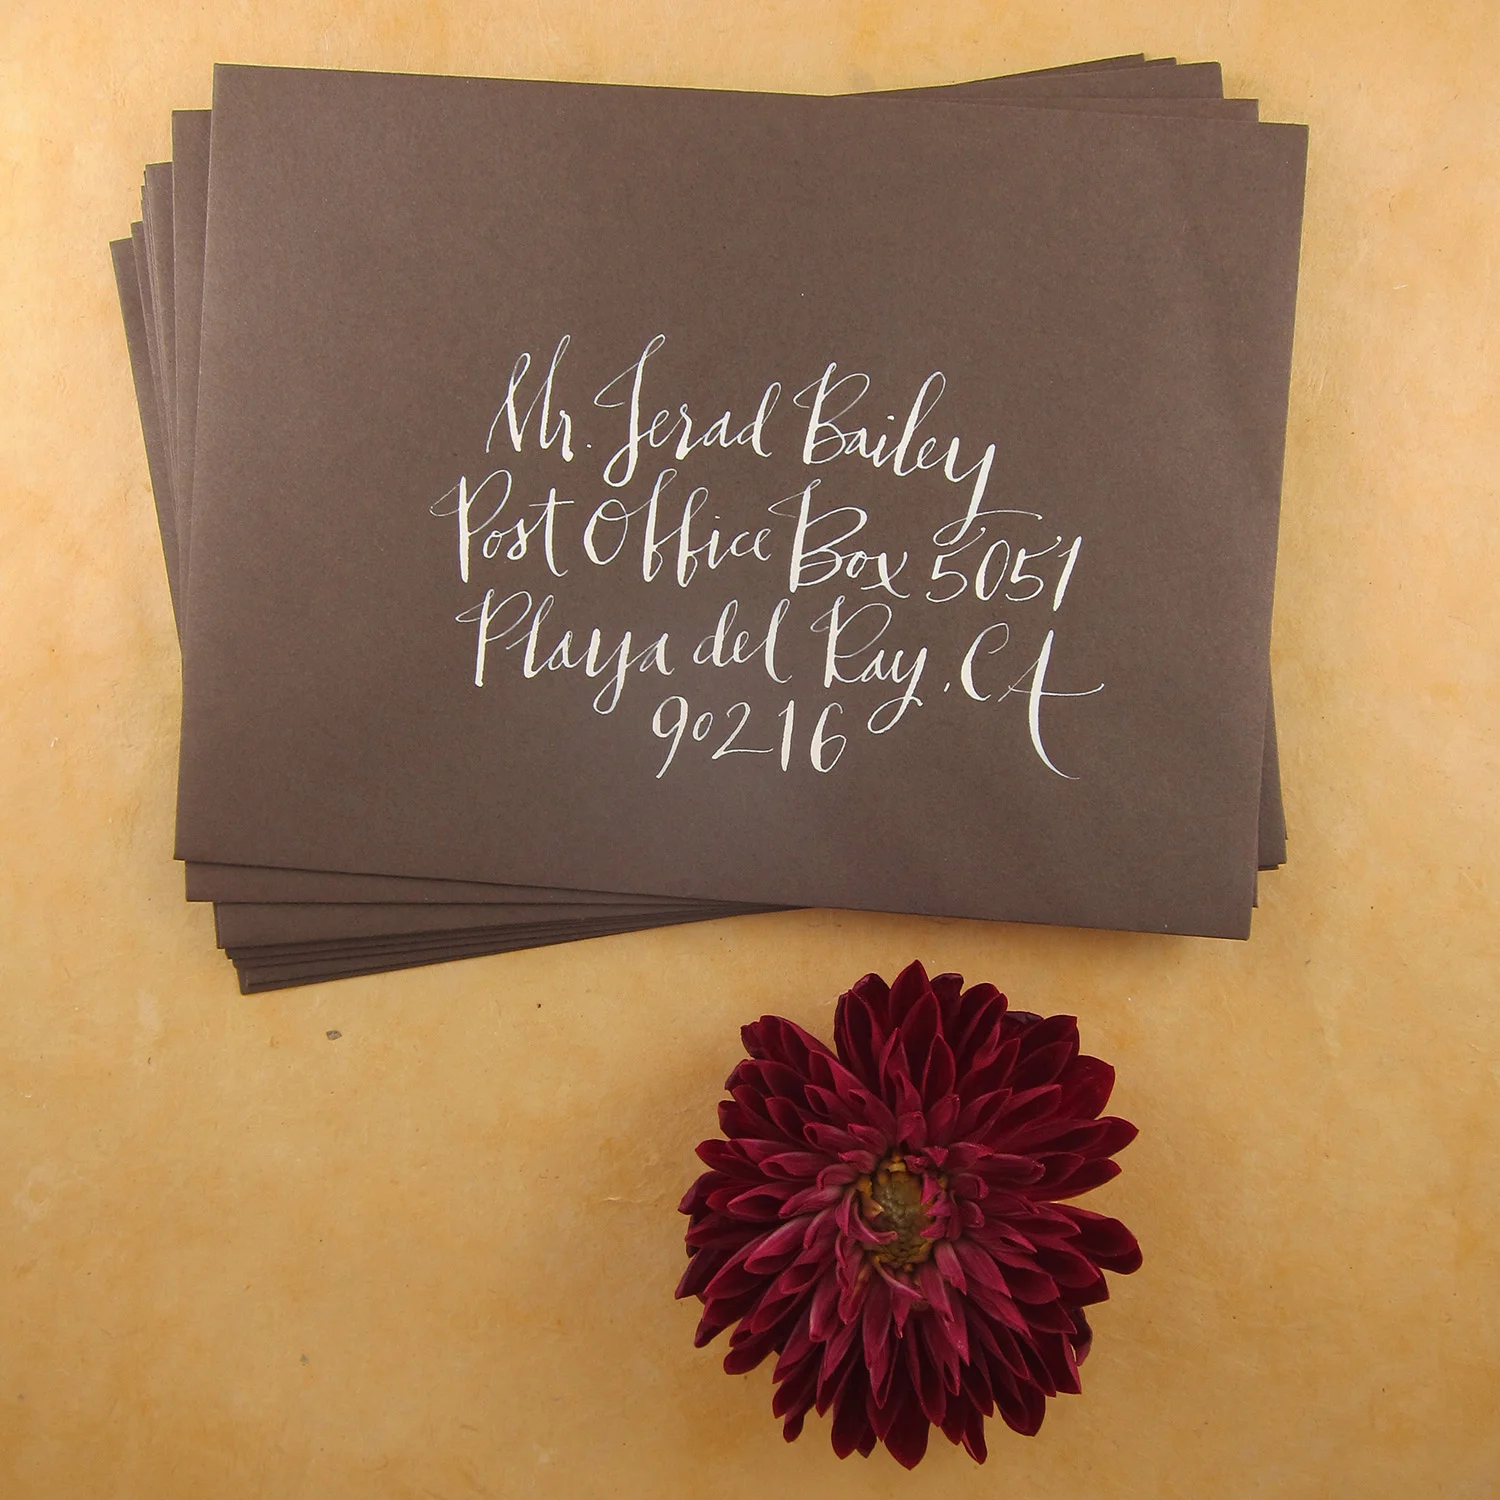 Mr. Jerad Bailey
Post Office Box 5051
Playa del Ray, CA
90216